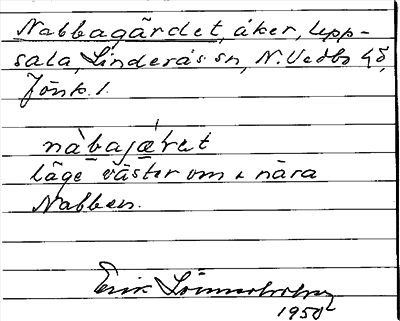 Nabbagärdet, åker, Upp-
sala, Linderås sn, N. Vedbo hd,
Jönk. l.
nàbajæ̀ret
läge väster om o nära
Nabben.
Erik
1950